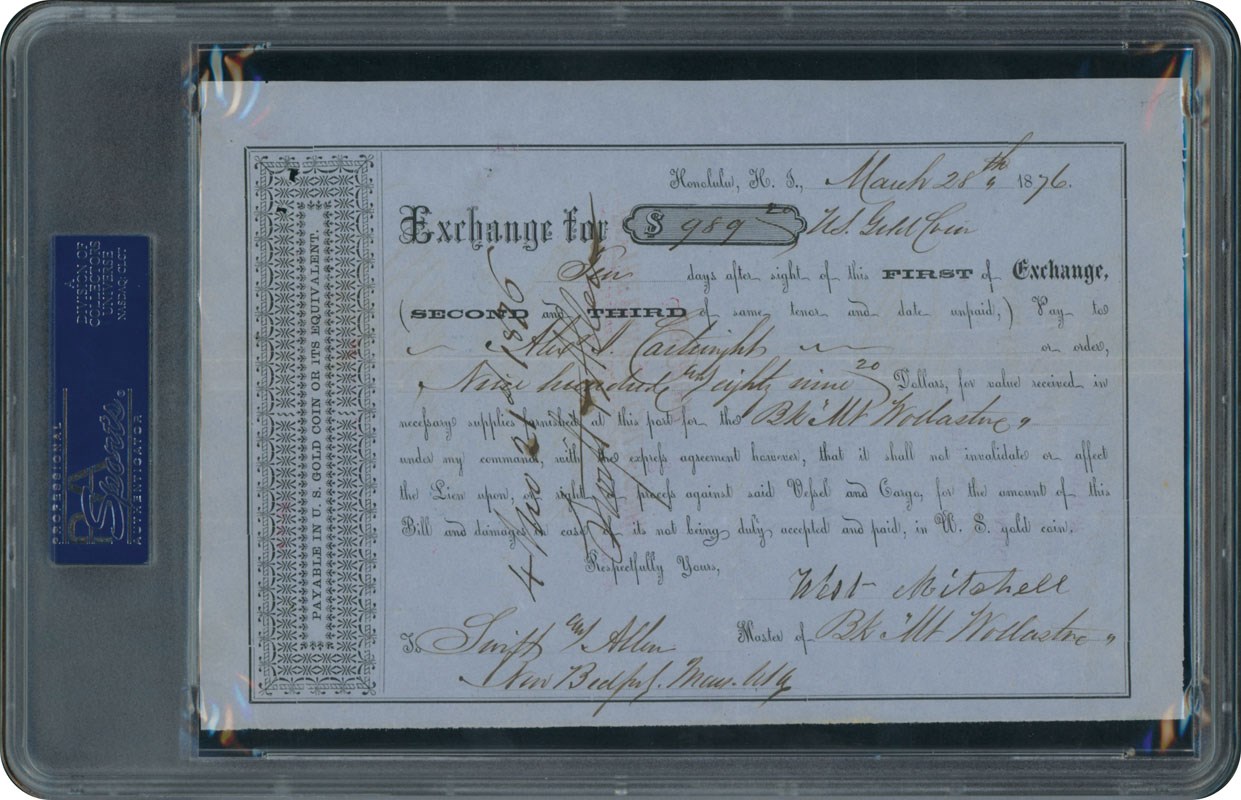 Honolulu, H. I., March 28th 1876.
Exchange for $ 989 20 U.S. Gold Coin
Ten days after sight of this FIRST of Exchange,
(SECOND and THIRD of same tenor and date unpaid,) Pay to
Alexr J. Cartwright or order,
Nine hundred and eighty nine 20 Dollars, for value received in
necessary supplies furnished at this port for the Bk "Mt Wollaston"
under my command, with the express agreement however, that it shall not invalidate or affect
the Lien upon, or right of process against said Vessel and Cargo, for the amount of this
Bill and damages in case of its not being duly accepted and paid, in U. S. gold coin.
Respectfully Yours,
West Mitchell
To Swift and Allen Master of Bk "Mt Wollaston"
New Bedford. Mass. USA
PAYABLE IN U. S. GOLD COIN OR ITS EQUIVALENT.
4/mo 21st 1876
Swift & Allen
A
DIVISION OF
COLLECTORS
UNIVERSE
NASDAQ: CLCT
PROFESSIONAL
PSA
Sports
AUTHENTICATOR